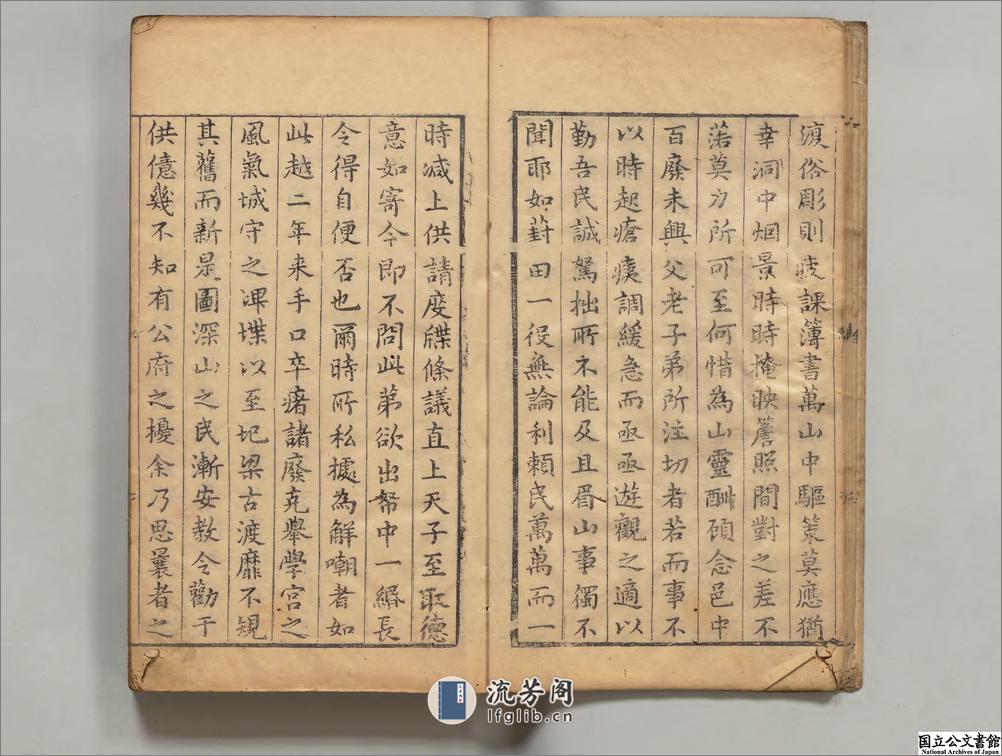 滾俗彫則疲課簿書萬山中驅策莫應猶
幸洞中烟景時時掩映簷照間對之差不
落莫力所可至何惜為山靈酬顧念邑中
百廢未興父老子弟所注切者若而事不
以時起瘡痍調緩急而亟亟遊觀之適以
勤吾民誠駑拙所不能及且眉山事獨不
聞耶如葑田一役無論利賴民萬萬而一
時减上供請度牒條議直上天子至取德
意如寄今即不問此第欲出帑中一緡長
令得自便否也爾時所私據為解嘲者如
此越二年来手口卒瘏諸廢克舉學宮之
風氣城守之渒堞以至圮梁古渡靡不規
其舊而新是圖深山之民漸安教令勸于
供億幾不知有公府之擾余乃思曩者之
流芳阁
lfglib.cn
国立公文書館
National Archives of Japan